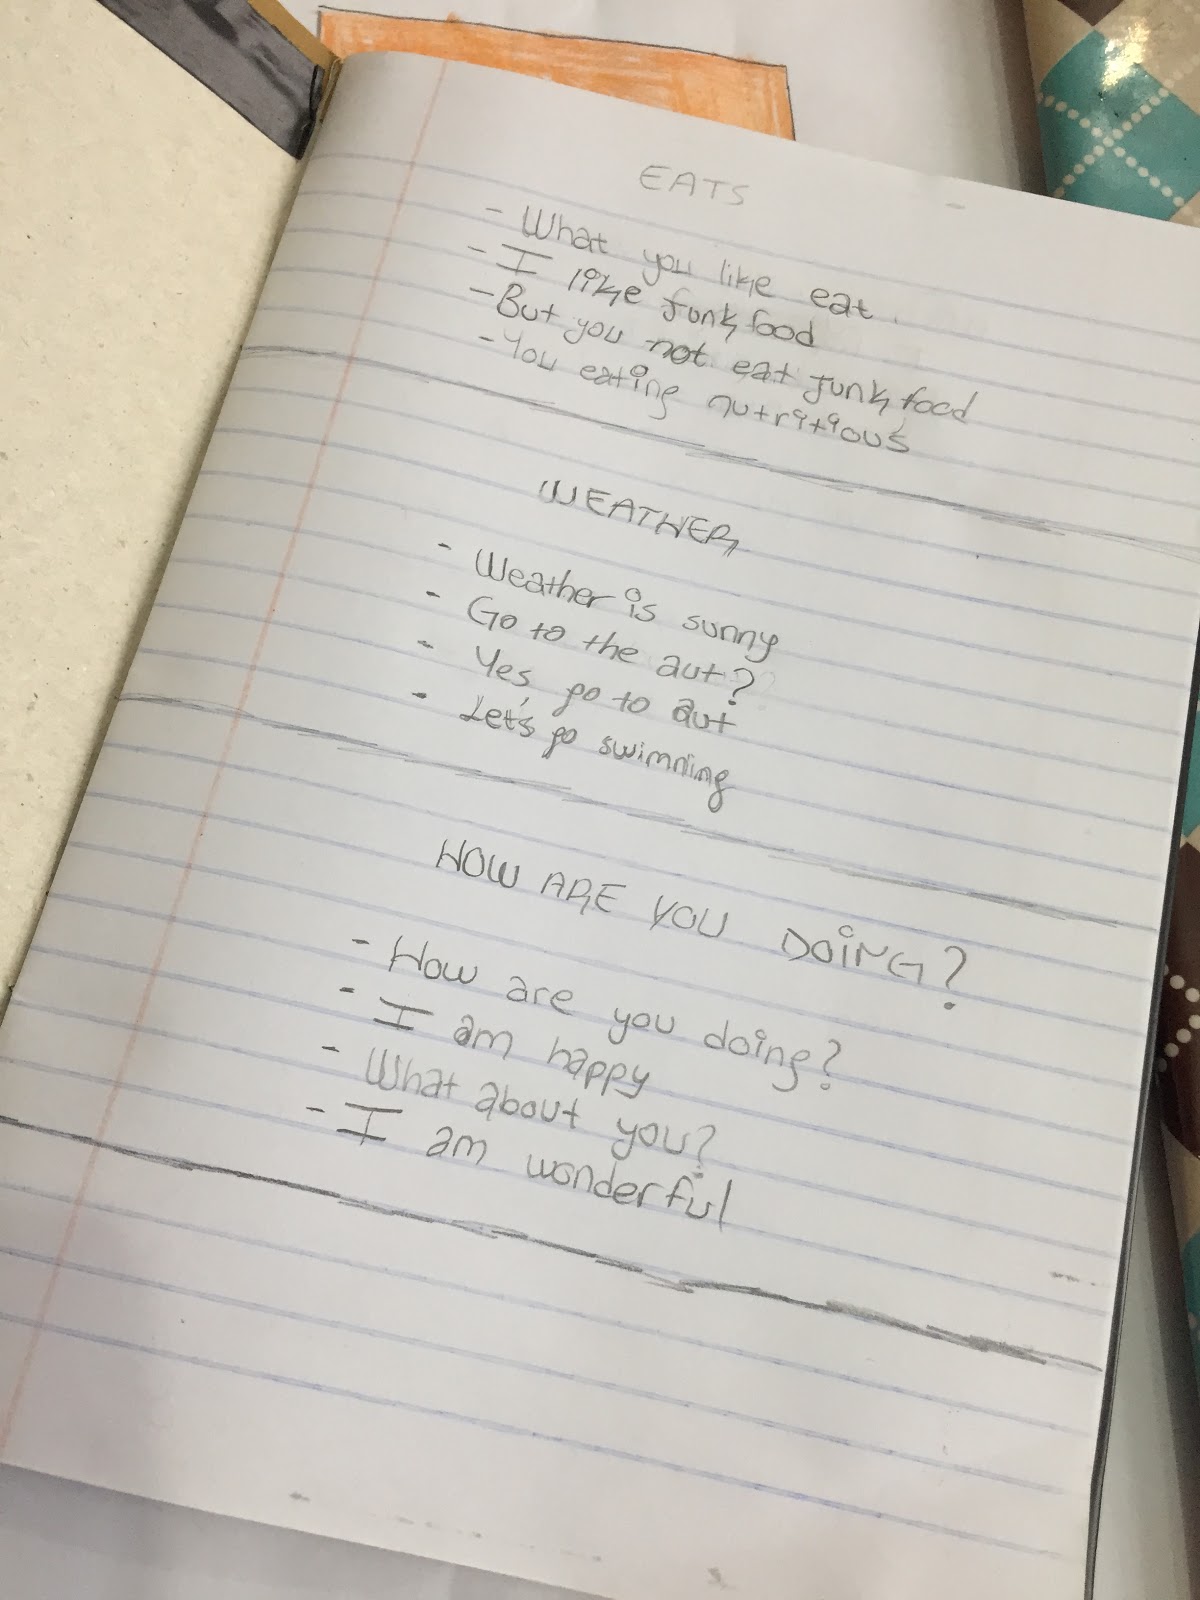 EATS
- What you like eat.
- I like junk food
- But you not eat junk food
- You eating nutritious
WEATHER
- Weather is sunny
- Go to the aut?
- Yes, go to aut
- Let's go swimming
HOW ARE YOU DOING?
- How are you doing?
- I am happy
- What about you?
- I am wonderful